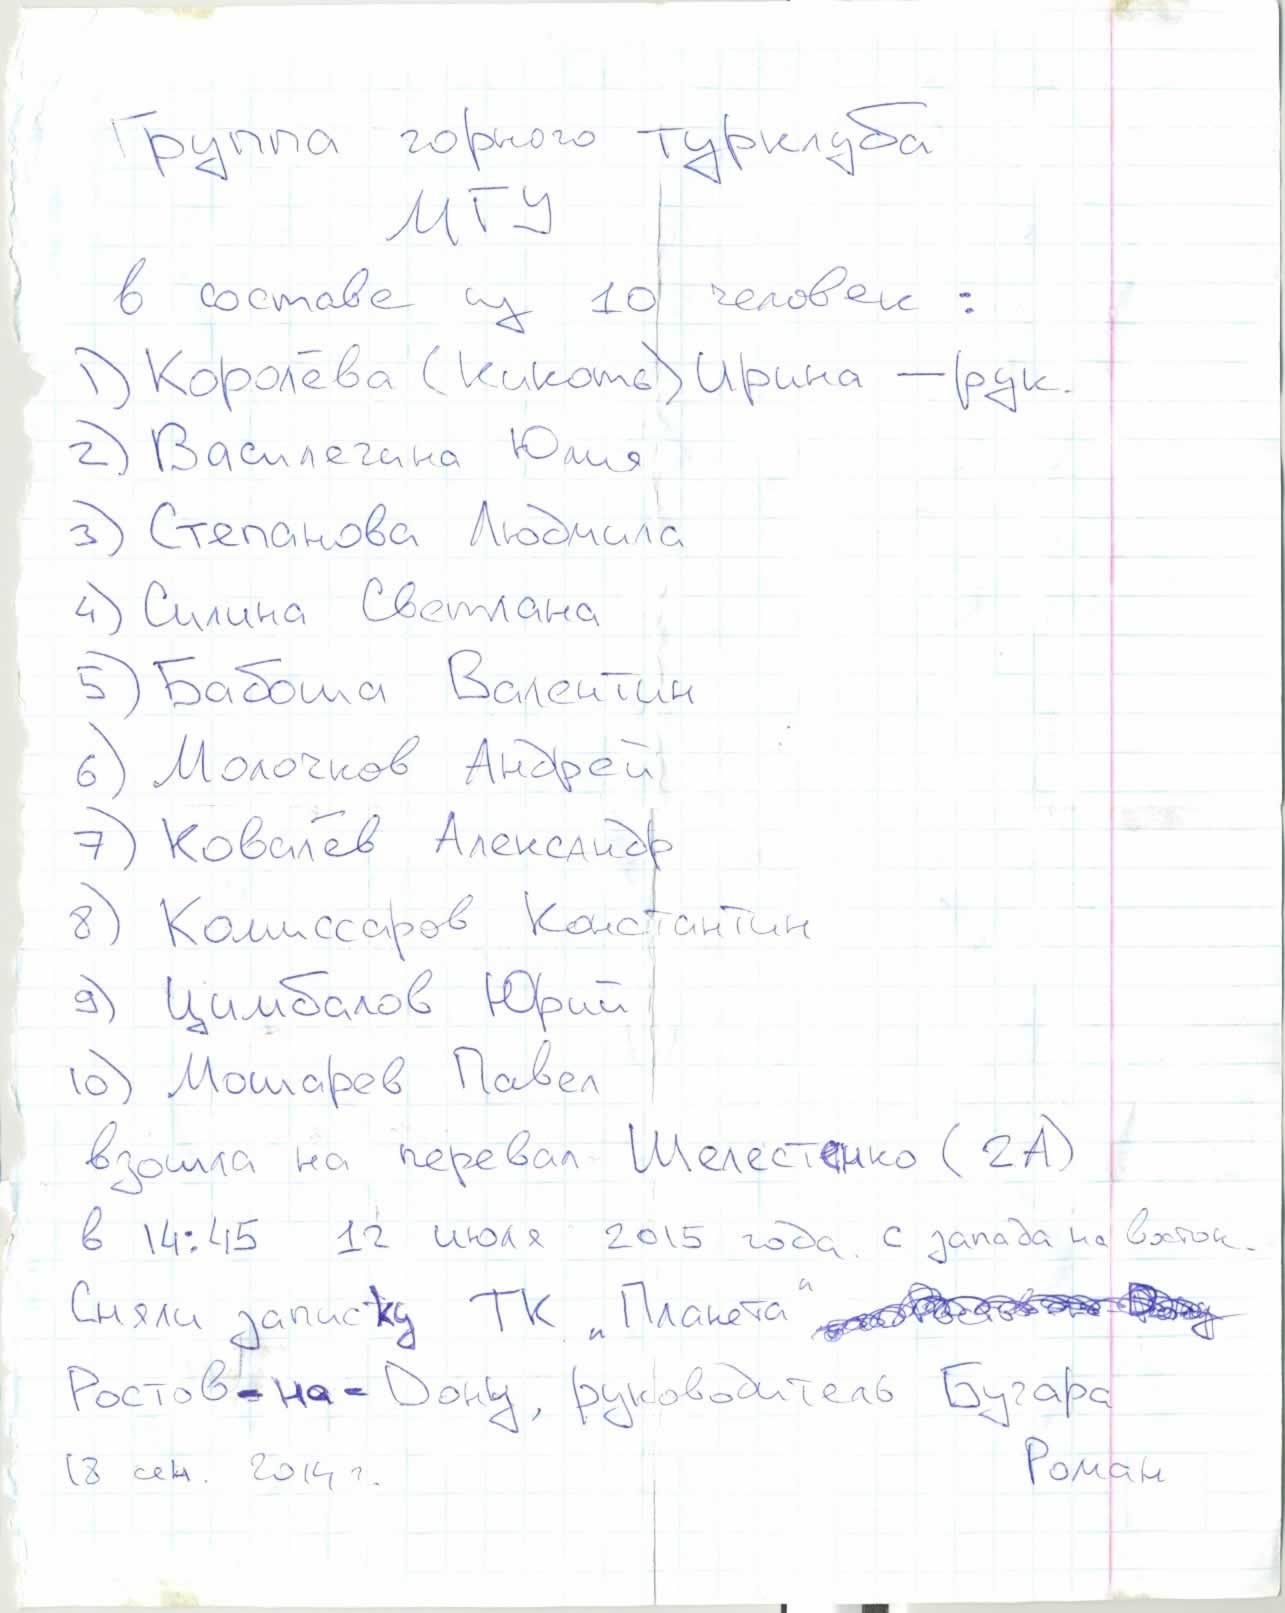 Группа горного турклуба
МГУ
в составе из 10 человек:
1) Королёва (Кикоть) Ирина — рук.
2) Василегина Юлия
3) Степанова Людмила
4) Силина Светлана
5) Бабоша Валентин
6) Молочков Андрей
7) Ковалёв Александр
8) Комиссаров Константин
9) Цимбалов Юрий
10) Мошарев Павел
взошла на перевал Шелестенко (2А)
в 14:45 12 июля 2015 года с запада на восток.
Сняли записку ТК „Планета"
Ростов-на-Дону, руководитель Бугара
18 сен. 2014 г. Роман